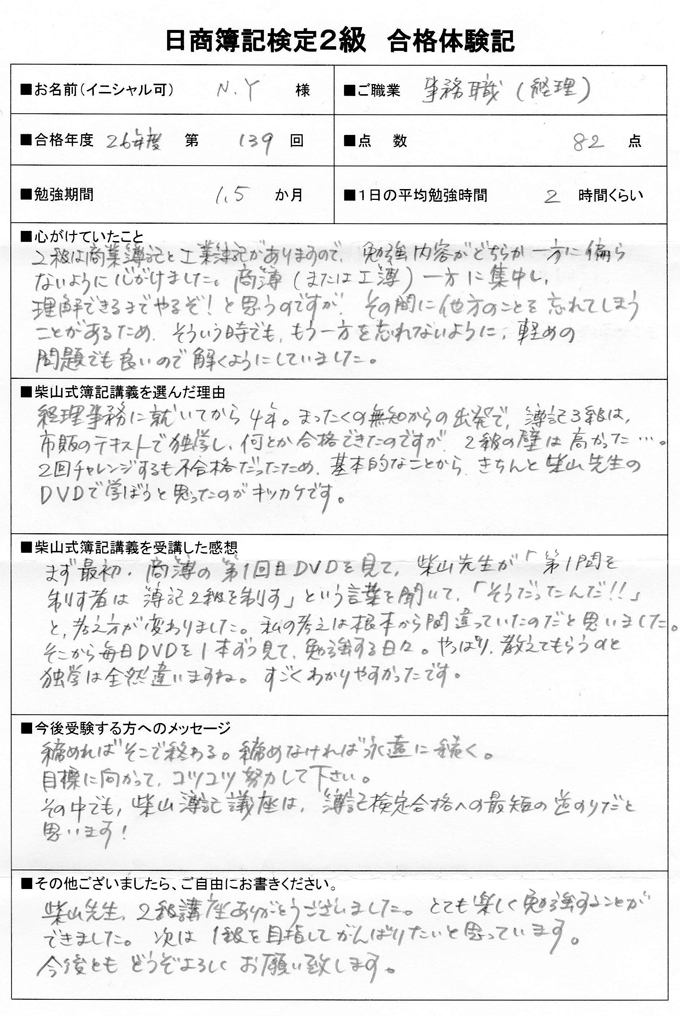 日商簿記検定2級 合格体験記
■お名前(イニシャル可) N.Y 様 ■ご職業 事務職(経理)
■合格年度 26年度 第 139 回 ■点数 82 点
■勉強期間 1.5 か月 ■1日の平均勉強時間 2 時間くらい
■心がけていたこと
2級は商業簿記と工業簿記がありますので、勉強内容がどちらか一方に偏ら
ないように心がけました。商簿(または工簿)一方に集中し、
理解できるまでやるぞ!と思うのですが、その間に他方のことを忘れてしまう
ことがあるため、そういう時でも、もう一方を忘れないように、軽めの
問題でも良いので解くようにしていました。
■柴山式簿記講義を選んだ理由
経理事務に就いてから4年。まったくの無知からの出発で、簿記3級は、
市販のテキストで独学し、何とか合格できたのですが、2級の壁は高かった…。
2回チャレンジするも不合格だったため、基本的なことから、きちんと柴山先生の
DVDで学ぼうと思ったのがキッカケです。
■柴山式簿記講義を受講した感想
まず最初、商簿の第1回目DVDを見て、柴山先生が「第1問を
制す者は簿記2級を制す」という言葉を聞いて、「そうだったんだ!!」
と、考え方が変わりました。私の考えは根本から間違っていたのだと思いました。
そこから毎日DVDを1本ずつ見て、勉強する日々。やっぱり、教えてもらうのと
独学は全然違いますね。すごくわかりやすかったです。
■今後受験する方へのメッセージ
諦めればそこで終わる。諦めなければ永遠に続く。
目標に向かって、コツコツ努力して下さい。
その中でも、柴山簿記講座は、簿記検定合格への最短の道のりだと
思います!
■その他ございましたら、ご自由にお書きください。
柴山先生、2級講座ありがとうございました。とても楽しく勉強することが
できました。次は1級を目指してがんばりたいと思っています。
今後ともどうぞよろしくお願い致します。